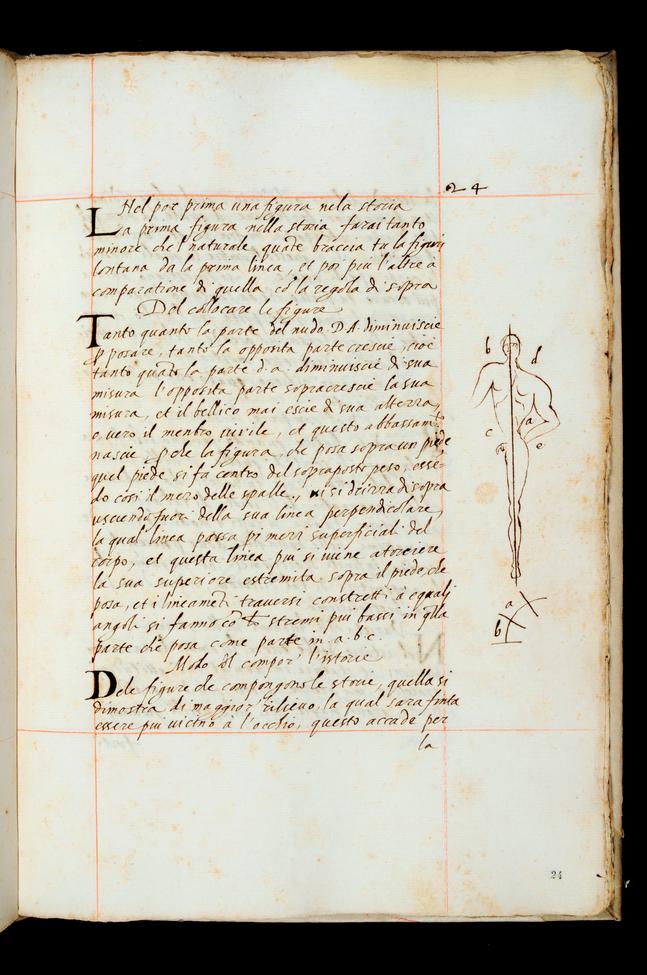 24
Nel por prima una figura nela storia
La prima figura nella storia farai tanto
minore che'l naturale quate braccia tu la figuri
lontana da la prima linea, et poi piu l'altre a
comparatione di quella cō la regola di sopra
Del collocare le figure
Tanto quanto la parte del nudo D.A. diminuiscie
p posare, tanto la opposita parte crescie, cioè
tanto quāto la parte d.a. diminuiscie di sua
misura l'opposita parte sopracrescie la sua
misura, et il bellico mai escie di sua altezza,
o, vero il membro virile, et questo abbassam.to
nascie p che la figura, che posa sopra un piede
quel piede si fa centro del sopraposto peso, essē
do cosi il mezo delle spalle, vi si drizza di sopra
uscendo fuori della sua linea perpendicolare,
la qual linea passa pi mezi superficiali del
corpo, et questa linea piu si viene a torcere
la sua superiore estremita sopra il piede, che
posa, et i lineamēti traversi constretti a eguali
angoli si fanno co stremi piu bassi in qlla
parte che posa, come parte in a.b.c.
Modo di compor' l'istorie
Dele figure che compongono le storie, quella si
dimostra di maggior' rilievo, la qual sara finta
essere piu vicino à l'occhio, questo accade per
la
b
d
a
c
e
a
b
24